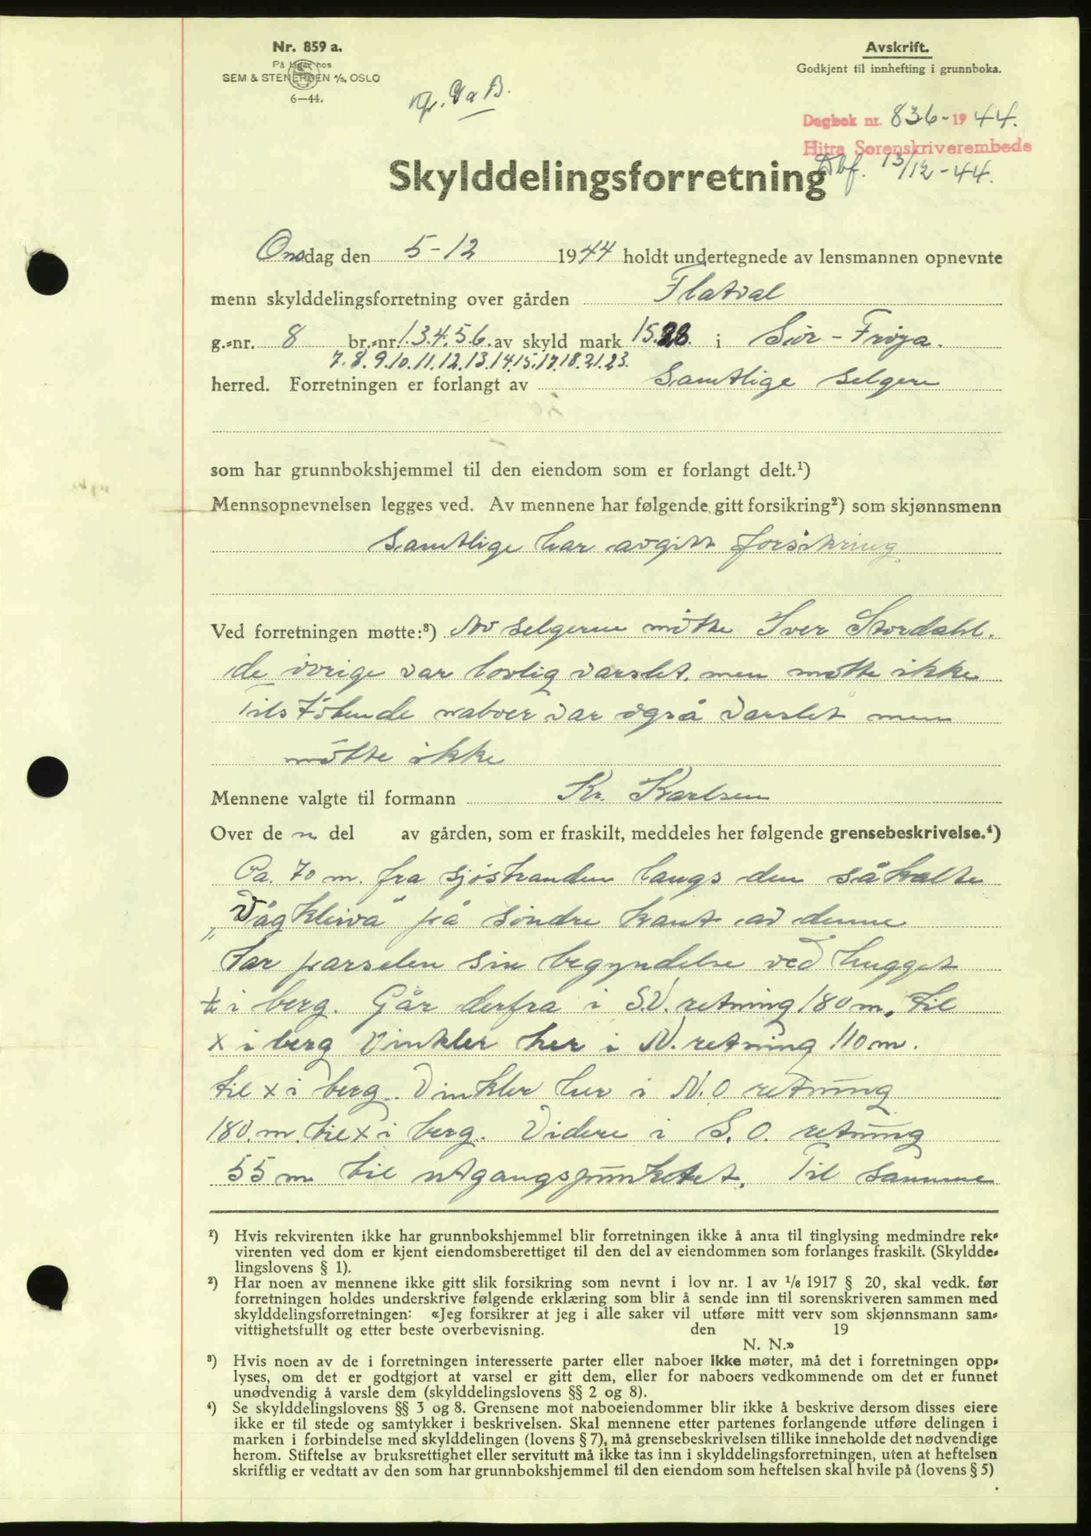 Nr. 859 a.
På lager hos
SEM & STENERSEN A/S, OSLO
6—44.
Avskrift.
Godkjent til innhefting i grunnboka.
Dagbok nr. 836-1944.
Hitra Sorenskriverembede
Dbf. 13/12-44.
Skylddelingsforretning
Onsdag den 5-12 1944 holdt undertegnede av lensmannen opnevnte
menn skylddelingsforretning over gården Flatval
g.-nr. 8 br.-nr 1.3.4.5.6. av skyld mark 15.28 i Sør-Frøya.
7.8.9.10.11.12.13.14.15.17.18.21.23.
herred. Forretningen er forlangt av Samtlige selgere
som har grunnbokshjemmel til den eiendom som er forlangt delt.¹)
Mennsopnevnelsen legges ved. Av mennene har følgende gitt forsikring²) som skjønnsmenn
Samtlige har avgitt forsikring
Ved forretningen møtte:³) Av selgerne møtte Iver Stordahl.
de øvrige var lovlig varslet, men møtte ikke
Tilstøtende naboer var også varslet men
møtte ikke
Mennene valgte til formann Kr. Karlsen
Over de n del av gården, som er fraskilt, meddeles her følgende grensebeskrivelse.⁴)
Ca. 70 m. fra sjøstranden langs den såkalte
„Vågkleiva" på søndre kant av denne
tar parselen sin begyndelse ved hugget
i berg. Går derfra i S.V. retning 180 m. til
x i berg Vinkler her i N. retning 110 m.
til x i berg. Vinkler her i N.O retning
180 m til x i berg. Videre i S.O. retning
55 m til utgangspunktet. Til samme
¹) Hvis rekvirenten ikke har grunnbokshjemmel blir forretningen ikke å anta til tinglysing medmindre rek-
virenten ved dom er kjent eiendomsberettiget til den del av eiendommen som forlanges fraskilt. (Skyldde-
lingslovens § 1).
²) Har noen av mennene ikke gitt slik forsikring som nevnt i lov nr. 1 av 1/6 1917 § 20, skal vedk. før
forretningen holdes underskrive følgende erklæring som blir å sende inn til sorenskriveren sammen med
skylddelingsforretningen: «Jeg forsikrer at jeg i alle saker vil utføre mitt verv som skjønnsmann sam-
vittighetsfullt og etter beste overbevisning. den 19
N. N.»
³) Hvis noen av de i forretningen interesserte parter eller naboer ikke møter, må det i forretningen opp-
lyses, om det er godtgjort at varsel er gitt dem, eller for naboers vedkommende om det er funnet
unødvendig å varsle dem (skylddelingslovens §§ 2 og 8).
⁴) Se skylddelingslovens §§ 3 og 8. Grensene mot naboeiendommer blir ikke å beskrive dersom disses eiere
ikke er til stede og samtykker i beskrivelsen. Skal mennene etter partenes forlangende utføre delingen i
marken i forbindelse med skylddelingen (lovens § 7), må grensebeskrivelsen tillike inneholde det nødvendige
herom. Stiftelse av bruksrettighet eller servitutt må ikke tas inn i skylddelingsforretningen, uten at heftelsen
skriftlig er vedtatt av den som har grunnbokshjemmel til den eiendom som heftelsen skal hvile på (lovens § 5)